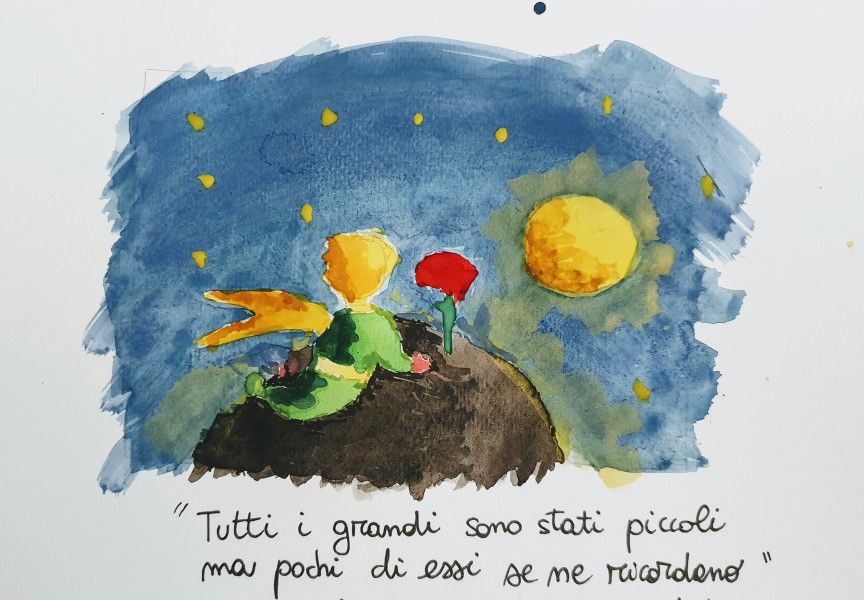 "Tutti i grandi sono stati piccoli
ma pochi di essi se ne ricordano"